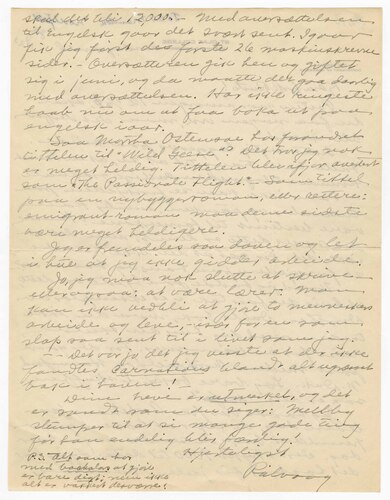 skal det bli 12000.- Med oversættelsen
til Engelsk gaar det svært sent. Igaar
fik jeg først de første 26 maskinskrevne
sider. - Oversætteren gik hen og giftet
sig i juni, og da maatte det gaa daarlig
med oversættelsen. Har ikke ringeste
haab nu om at faa boka ut paa
engelsk iaar.
Saa Martha Ostenso har forandret
tittelen til "Wild Geese"? Det tror jeg nok
er meget heldig. Tittelen blev jo avertert
som "The Passionate Flight". - Som tittel
paa en nybyggerroman, eller rettere:
emigrant roman maa denne sidste
være meget heldigere.
Jeg er fremdeles saa doven og let
i hue at jeg ikke gidder arbeide.
Ja, jeg maa nok slutte at skrive
eller ogsaa: at være lærer. Man
kan ikke vedbli at gjøre to menneskers
arbeide og leve, - især for en som
slap saa sent til i livet som jeg.
- - Det var jo det jeg visste at der ikke
fandtes Carnations blandt alt ugræsset
bak i haven! -
Dine breve er utmerket, og det
er sandt som du siger: Mellby
stumper til at si mange gode ting
før han endelig blir færdig!
Hjerteligst
Rølvaag
P.S. Alt som har
med at gjøre
er bare digt; men ikke
alt er vakkert desværre!